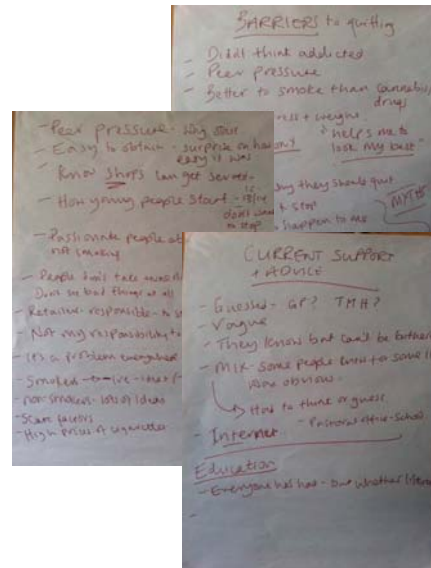 BARRIERS to quitting
- Didn't think addicted
- Peer pressure
- Better to smoke than cannabis,
drugs
stress + weight
"helps me to
look my best"
why they should quit
+ stop
MYTHS
happen to me
- Peer pressure -
- Easy to obtain - surprise on how
easy it was
- Know shops can get served -
- How young people start - 12
- 13/14
don't want
to stop
- Passionate people
not smoking
- People don't take
Don't see bad things at all
- Retailers responsible - to
- Not my responsibility to
- It's a problem everywhere
- Smokers -
- non-smokers - lots of ideas
- Scare factors
- High prices of cigarettes
CURRENT SUPPORT
+ ADVICE
- Guessed - GP? TMH?
- Vague
- They know but can't be bothered
- Mix - some people knew to some
was obvious.
Had to think or guess.
- Pastoral office - School.
- Internet
Education
- Everyone has had - but whether
-